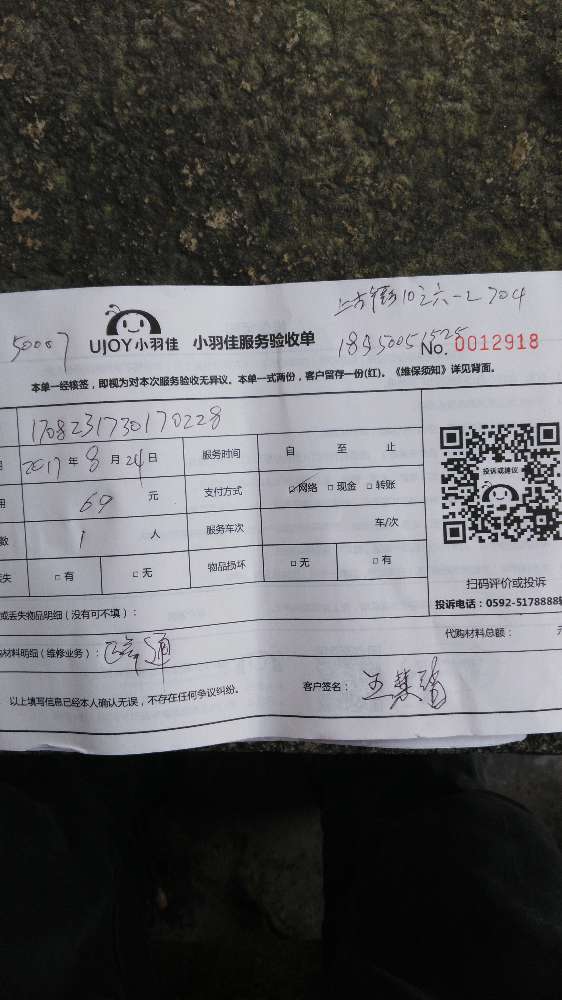 50007
10之六-2 704
UJOY小羽佳 小羽佳服务验收单
No. 0012918
本单一经核签，即视为对本次服务验收无异议。本单一式两份，客户留存一份(红)。《维保须知》详见背面。
1708231730170228
2017年8月24日 服务时间 自 至 止
用 69 元 支付方式 网络 □现金 □转账
数 1 人 服务车次 车/次
丢失 □有 □无 物品损坏 □无 □有
投诉或建议
扫码评价或投诉
投诉电话：0592-5178888
或丢失物品明细（没有可不填）：
代购材料总额：
购材料明细（维修业务）： 通
以上填写信息已经本人确认无误，不存在任何争议纠纷。
客户签名：王慧